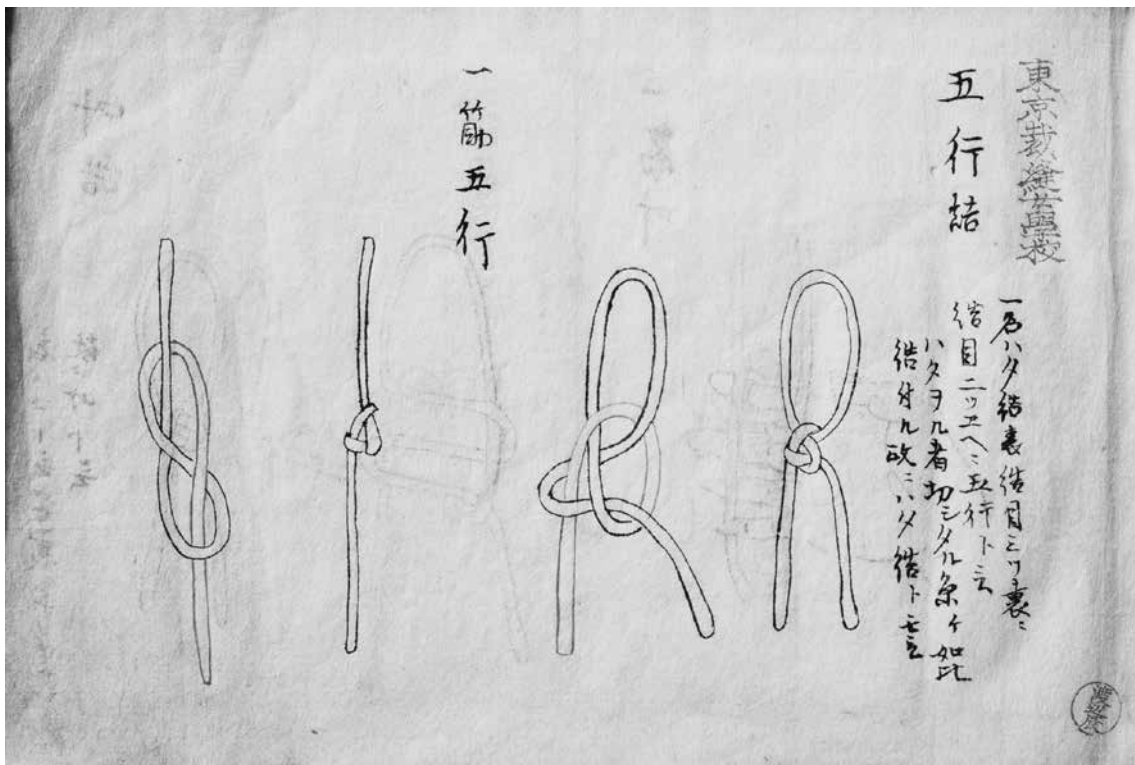 東京裁縫女學校
五行結
一名ハタ結表結目三ツ裏ニ
結目二ツユヘニ五行ト云
ハタヲル者切レタル糸ヲ如此
結付ル故ニハタ結ト云
一筋五行